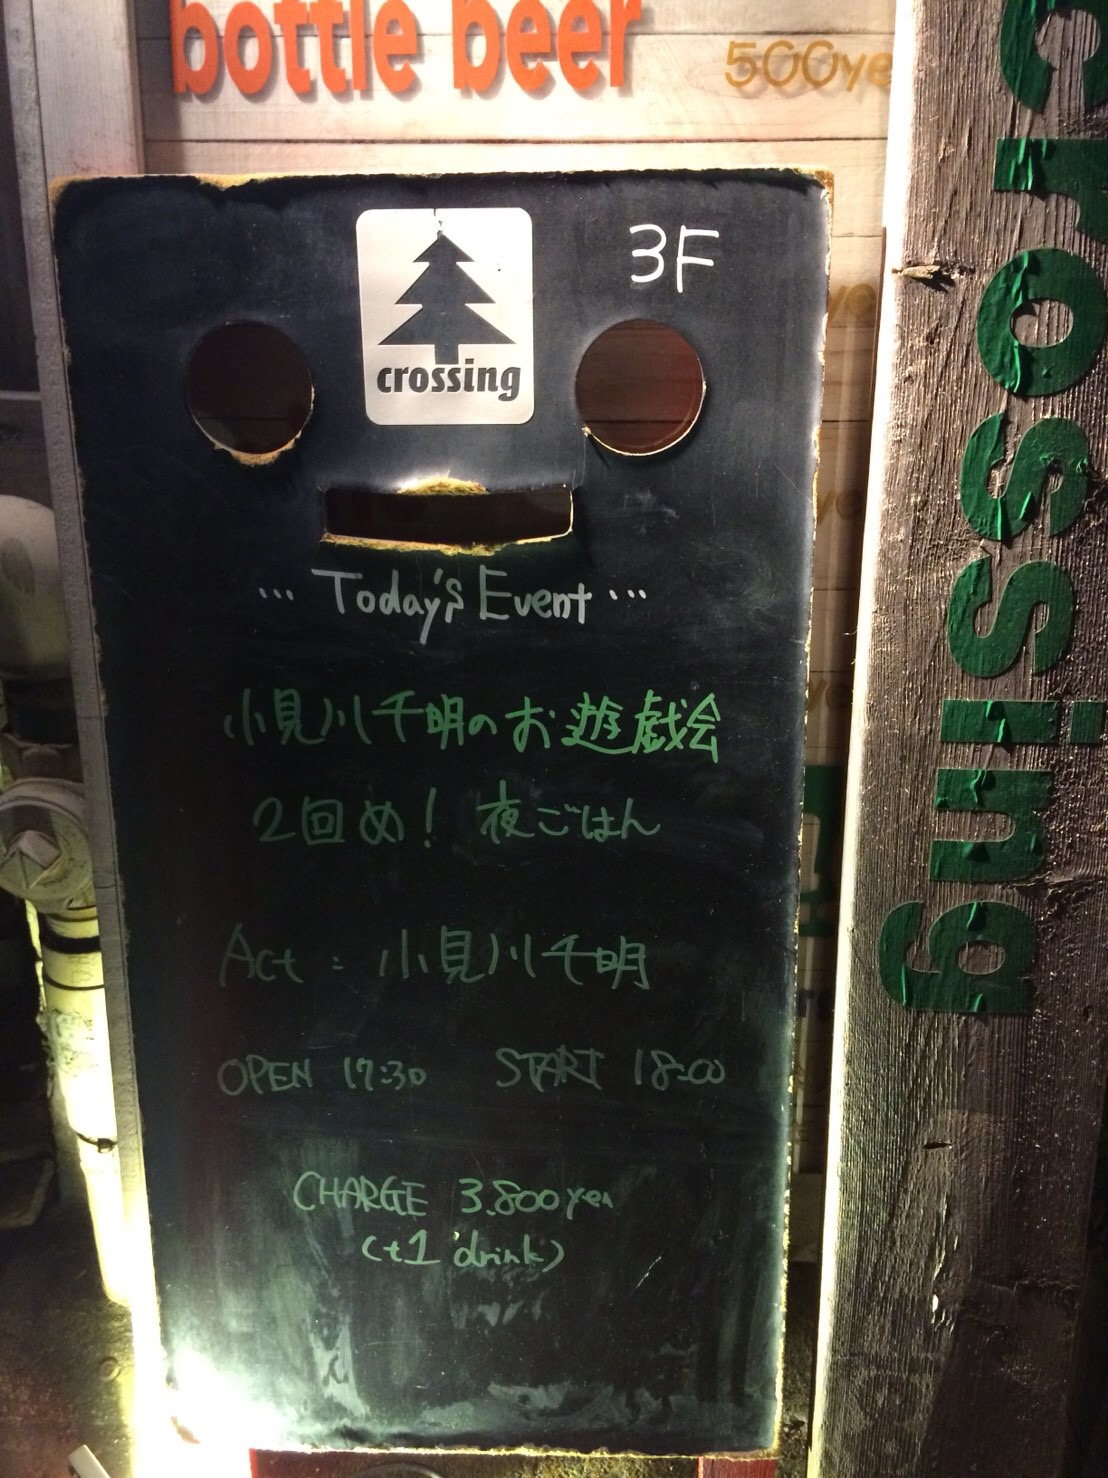 bottle beer
500ye
3F
crossing
... Today's Event ...
小見川千明のお遊戯会
2回め! 夜ごはん
Act : 小見川千明
OPEN 17:30 START 18:00
CHARGE 3.800yen
(+1 drink)
crossing